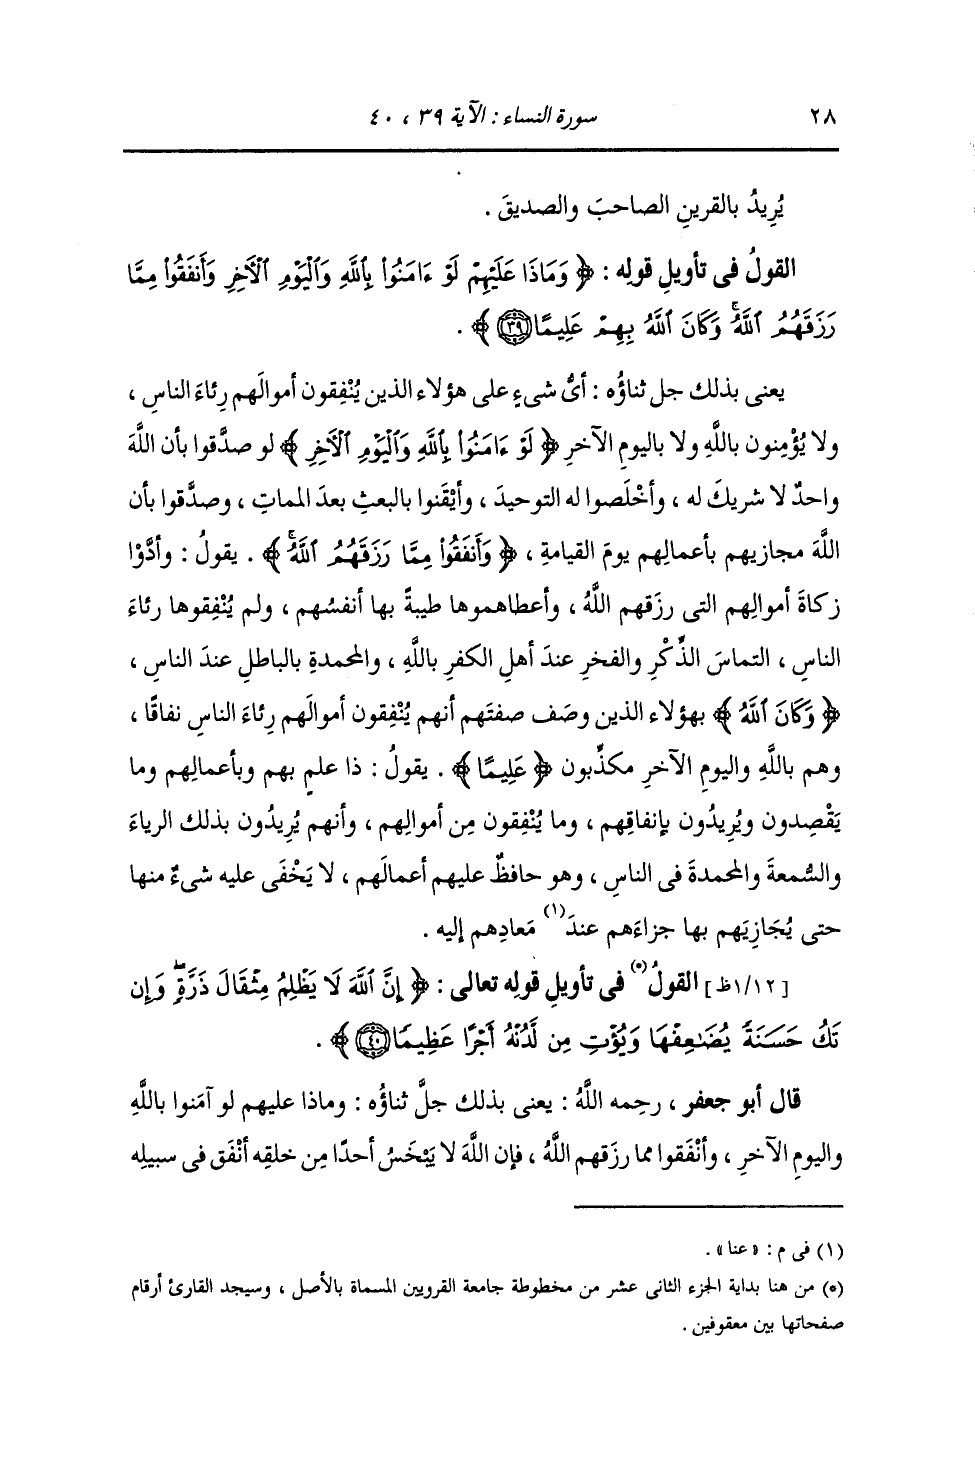 ٢٨ سورة النساء : الآية ٣٩ ، ٤٠
يُرِيدُ بالقرينِ الصاحبَ والصديقَ .
القولُ فى تأويلِ قولِه : ﴿ وَمَاذَا عَلَيْهِمْ لَوْ ءَامَنُوا۟ بِٱللَّهِ وَٱلْيَوْمِ ٱلْـَٔاخِرِ وَأَنفَقُوا۟ مِمَّا
رَزَقَهُمُ ٱللَّهُ ۚ وَكَانَ ٱللَّهُ بِهِمْ عَلِيمًا ٣٩ ﴾ .
يعنى بذلك جل ثناؤُه : أىُّ شىءٍ على هؤلاء الذين يُنْفِقون أموالَهم رِئاءَ الناسِ ،
ولا يُؤْمِنون باللَّهِ ولا باليومِ الآخرِ ﴿ لَوْ ءَامَنُوا۟ بِٱللَّهِ وَٱلْيَوْمِ ٱلْـَٔاخِرِ ﴾ لو صدَّقوا بأن اللَّهَ
واحدٌ لا شريكَ له ، وأخْلَصوا له التوحيدَ ، وأيْقَنوا بالبعثِ بعدَ المماتِ ، وصدَّقوا بأن
اللَّهَ مجازيهم بأعمالِهم يومَ القيامةِ ، ﴿ وَأَنفَقُوا۟ مِمَّا رَزَقَهُمُ ٱللَّهُ ۚ ﴾ . يقولُ : وأدَّوْا
زكاةَ أموالِهم التى رزَقهم اللَّهُ ، وأعطاهموها طيبةً بها أنفسُهم ، ولم يُنْفِقوها رئاءَ
الناسِ ، التماسَ الذِّكْرِ والفخرِ عندَ أهلِ الكفرِ باللَّهِ ، والمحمدةِ بالباطلِ عندَ الناسِ ،
﴿ وَكَانَ ٱللَّهُ ﴾ بهؤلاء الذين وصَف صفتَهم أنهم يُنْفِقون أموالَهم رِئاءَ الناسِ نفاقًا ،
وهم باللَّهِ واليومِ الآخرِ مكذِّبون ﴿ عَلِيمًا ﴾ . يقولُ : ذا علمٍ بهم وبأعمالِهم وما
يَقْصِدون ويُرِيدُون بإنفاقِهم ، وما يُنْفِقون مِن أموالِهم ، وأنهم يُرِيدُون بذلك الرياءَ
والسُّمعةَ والمحمدةَ فى الناسِ ، وهو حافظٌ عليهم أعمالَهم ، لا يَخْفَى عليه شىءٌ منها
حتى يُجَازِيَهم بها جزاءَهم عندَ(١) مَعادِهم إليه .
[١/١٢ظ] القولُ(*) فى تأويلِ قولِه تعالى : ﴿ إِنَّ ٱللَّهَ لَا يَظْلِمُ مِثْقَالَ ذَرَّةٍ ۖ وَإِن
تَكُ حَسَنَةً يُضَٰعِفْهَا وَيُؤْتِ مِن لَّدُنْهُ أَجْرًا عَظِيمًا ٤٠ ﴾ .
قال أبو جعفر ، رحِمه اللَّهُ : يعنى بذلك جلَّ ثناؤُه : وماذا عليهم لو آمَنوا باللَّهِ
واليومِ الآخرِ ، وأنْفَقوا مما رزَقهم اللَّهُ ، فإن اللَّهَ لا يَبْخَسُ أحدًا مِن خلقِه أنْفَق فى سبيلِه
(١) فى م : « عنا » .
(*) من هنا بداية الجزء الثانى عشر من مخطوطة جامعة القرويين المسماة بالأصل ، وسيجد القارئ أرقام
صفحاتها بين معقوفين .